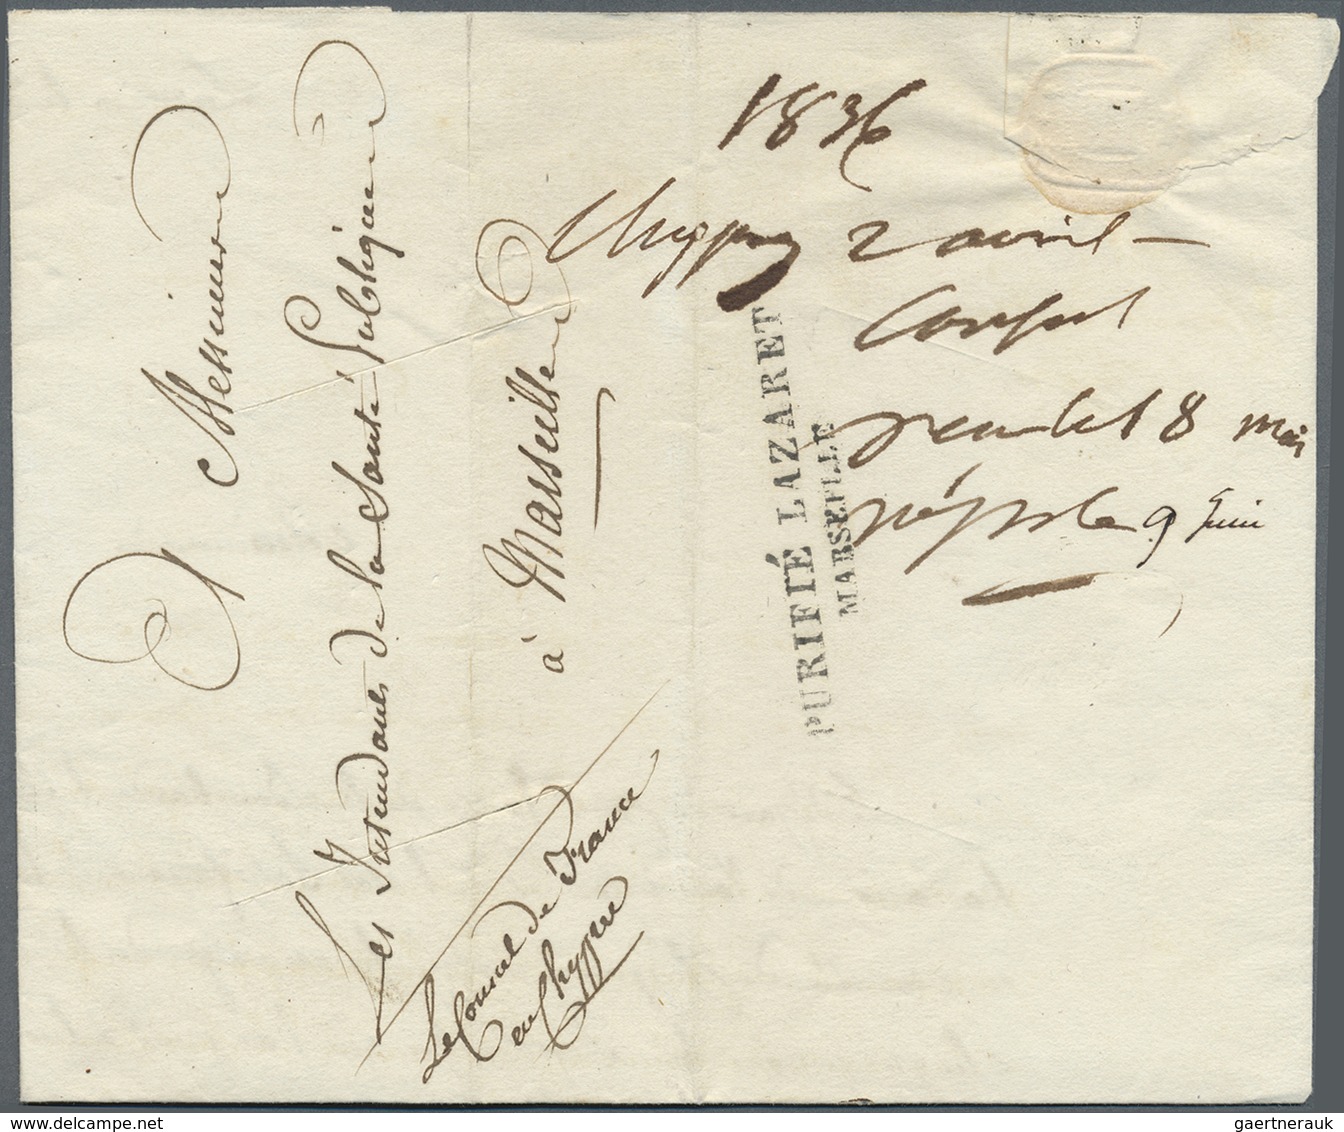 Messieurs
Les Intendants de la Santé Publique
à Marseille
Le Consul de France
en Chypre
1836
Chypre 2 avril
Consul
reçu le 18 mai
rép. le 9 Juin
PURIFIÉ LAZARET
MARSEILLE
gaertnerauk